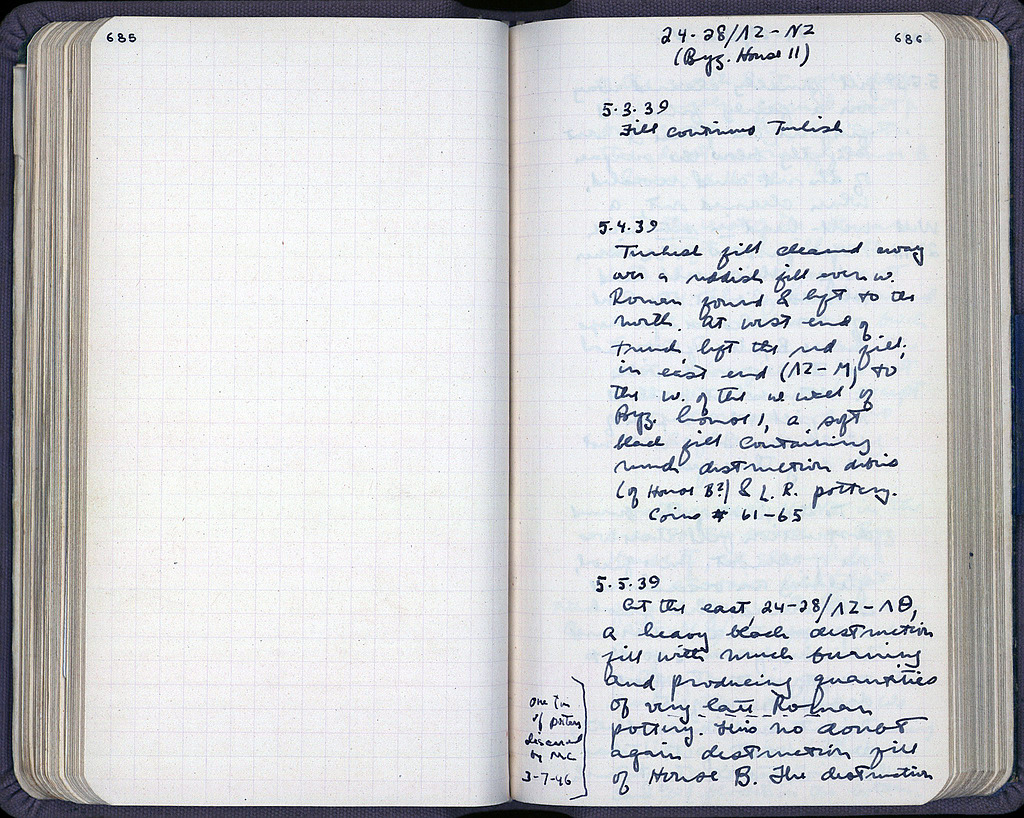 685
686
24-28/ΛΖ-ΝΖ
(Byz. House II)
5.3.39
Fill continues Turkish
5.4.39
Turkish fill cleared away
over a reddish fill even w.
Roman found & left to the
north. At west end of
trench left the red fill,
in east end (ΛΖ-Μ) to
the w. of the w wall of
Byz. house I, a soft
black fill containing
much destruction debris
(of House B?) & L. R. pottery.
Coins # 61-65
5.5.39
At the east, 24-28/ΛΖ-ΛΘ,
a heavy black destruction
fill with much burning
and producing quantities
of very late Roman
pottery. This no doubt
again destruction fill
of House B. The destruction
one tin
of pottery
discarded
by MC
3-7-46